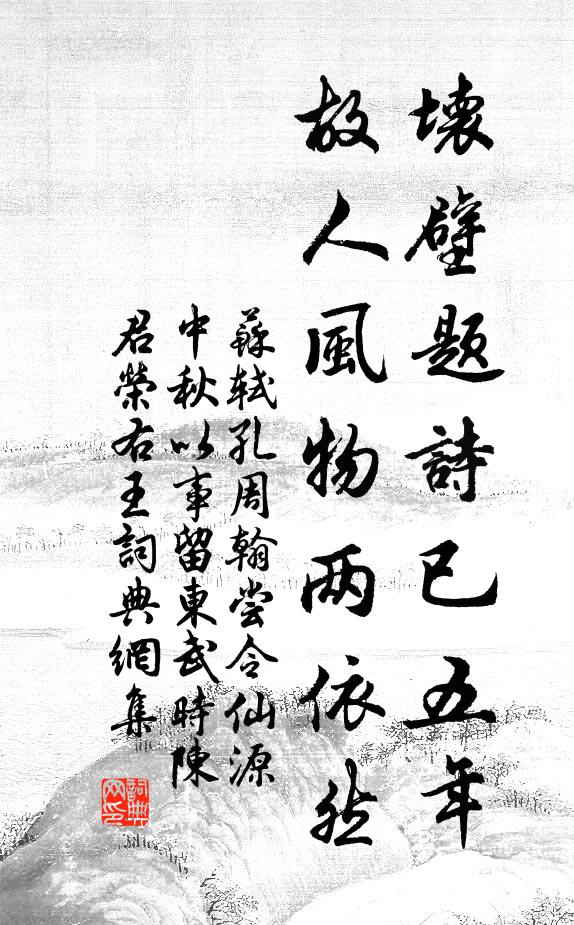 壞壁題詩已五年
故人風物两依然
蘇軾孔周翰嘗令仙源
中秋以事留東武時陳
君榮古王詞典網集
詞典
网印